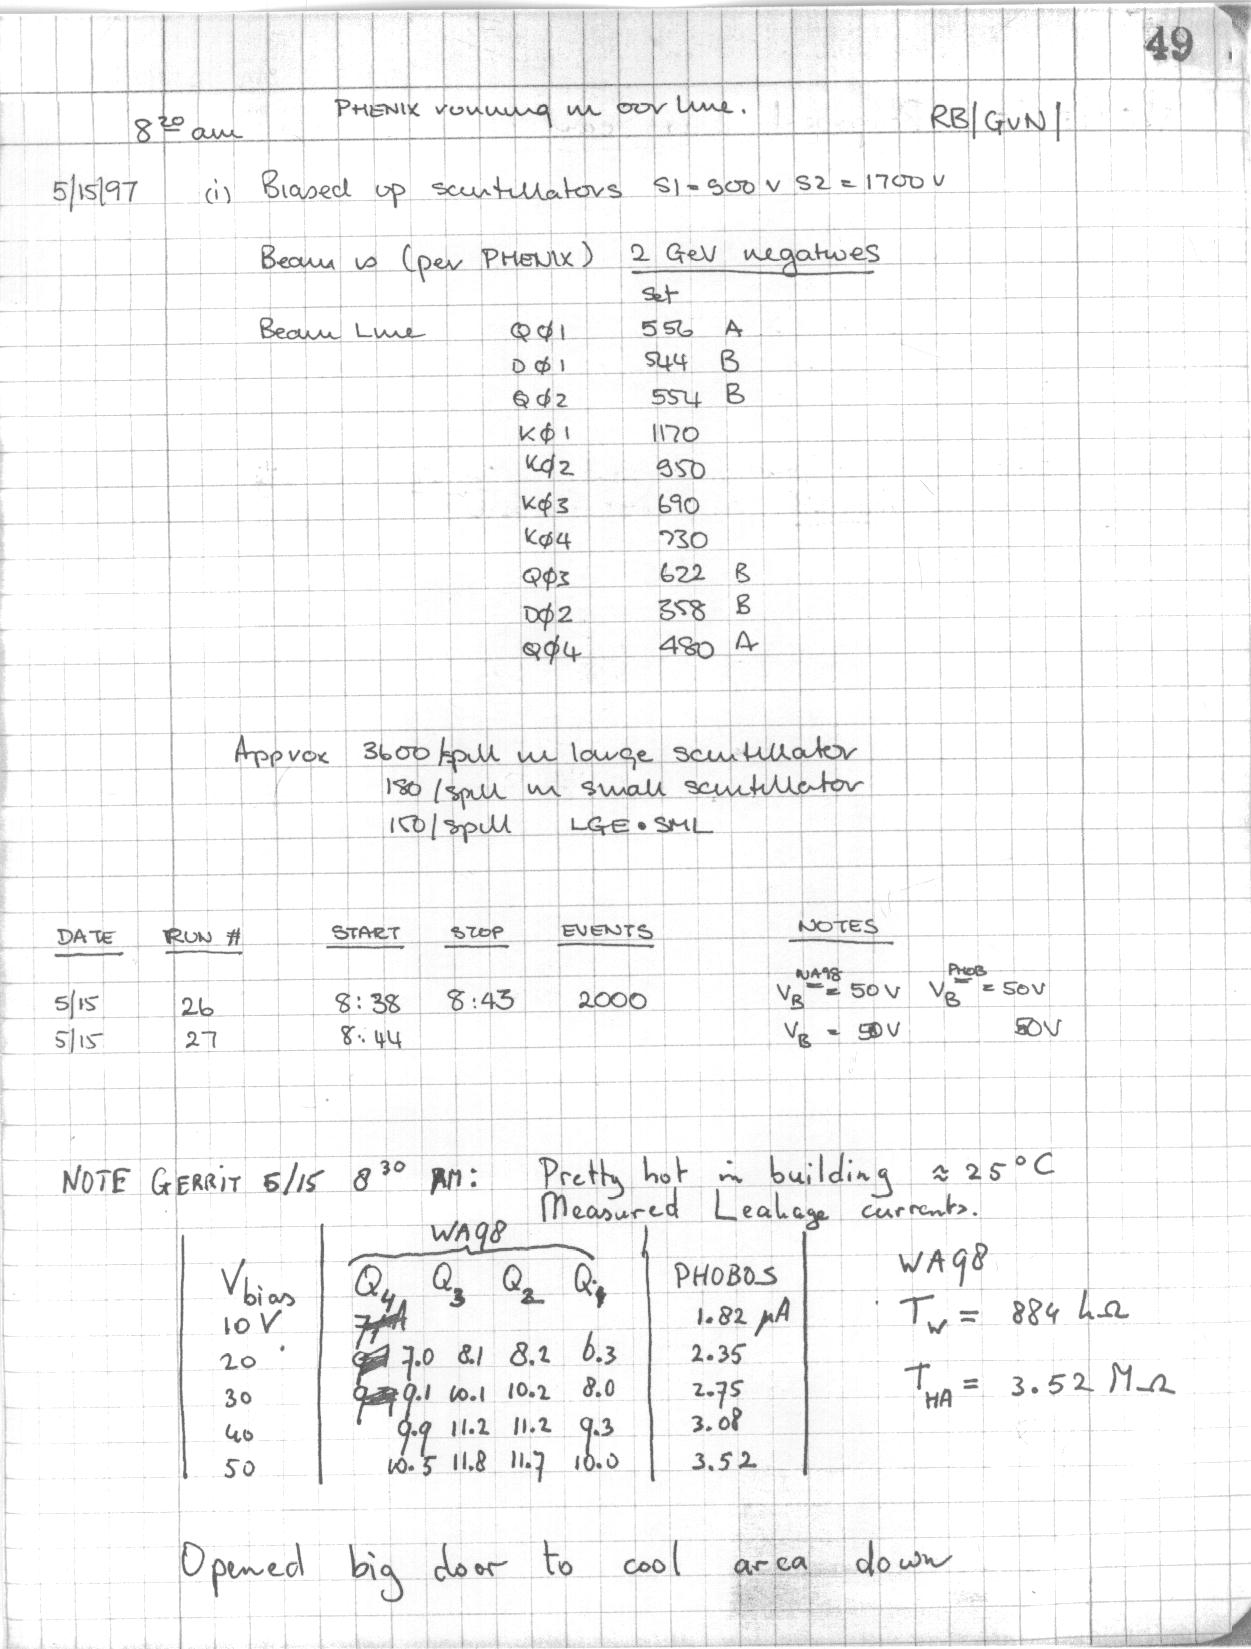 49
PHENIX running in our line.
8 30 am RB/GVN/
5/15/97 (i) Biased up scintillators S1=900V S2=1700V
Beam is (per PHENIX) 2 GeV negatives
Set
Beam Line QØ1 556 A
DØ1 544 B
QØ2 554 B
KØ1 1170
KØ2 950
KØ3 690
KØ4 730
QØ3 622 B
DØ2 358 B
QØ4 480 A
Approx 3600/spill in large scintillator
180/spill in small scintillator
150/spill LGE • SML
DATE RUN # START STOP EVENTS NOTES
5/15 26 8:38 8:43 2000 V_B^WA98 = 50V V_B^PHOB = 50V
5/15 27 8:44 V_B = 50V 50V
NOTE GERRIT 5/15 8 30 AM: Pretty hot in building ≈ 25°C
Measured Leakage currents.
WA98
Vbias Q4 Q3 Q2 Q1 PHOBOS
10 V 1.82 μA
20 7.0 8.1 8.2 6.3 2.35
30 9.1 10.1 10.2 8.0 2.75
40 9.9 11.2 11.2 9.3 3.08
50 10.5 11.8 11.7 10.0 3.52
WA98
T_W = 884 kΩ
T_HA = 3.52 MΩ
Opened big door to cool area down